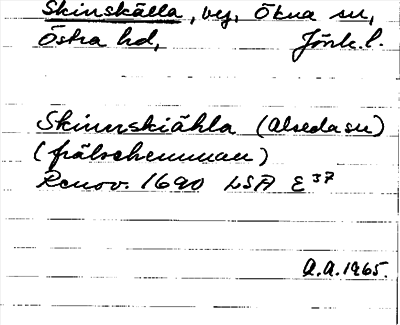 Skinskälla, by, Ökna sn,
Östra hd, Jönk.l.
Skinnskiähla (Alsedasn)
(frälsehemman)
Renov. 1690 LSA E 37
A.A.1965.